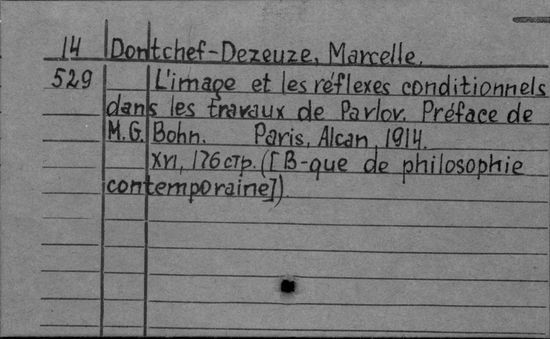 14 Dontchef-Dezeuze, Marcelle.
529 L'image et les réflexes conditionnels
dans les travaux de Pavlov. Préface de
M.G. Bohn. Paris, Alcan, 1914.
XVI, 176 стр. ([B-que de philosophie
contemporaine])